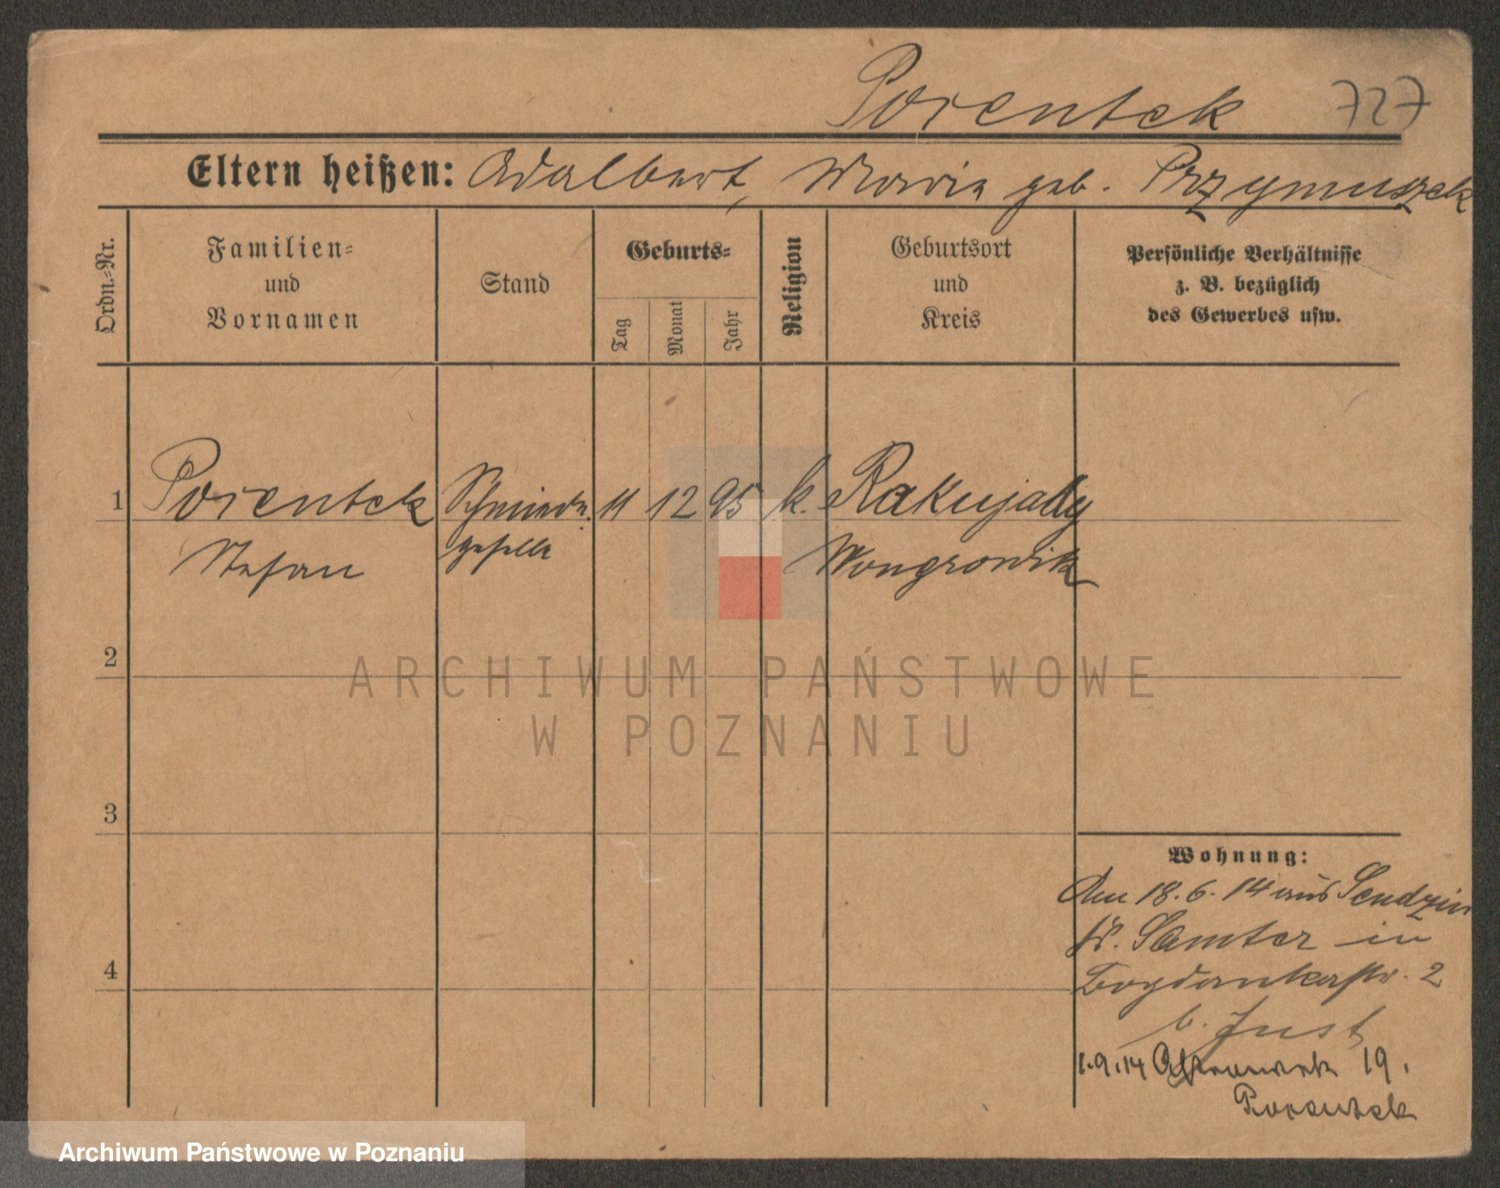 Porentek 727
Eltern heißen: Adalbert, Maria geb. Przymuszek
Ordn.-Nr.
Familien-
und
Vornamen
Stand
Geburts-
Tag
Monat
Jahr
Religion
Geburtsort
und
Kreis
Persönliche Verhältnisse
z. B. bezüglich
des Gewerbes usw.
1 Porentek Schmiede 11 12 95 k. Rakujady
Stefan geselle Wongrowitz
2
3
4
Wohnung:
Den 18.6.14 aus Sendzin
Kr. Samter in
Bogdankastr. 2
b. Just
1.9.14 19.
Porentek
ARCHIWUM PAŃSTWOWE
W POZNANIU
Archiwum Państwowe w Poznaniu